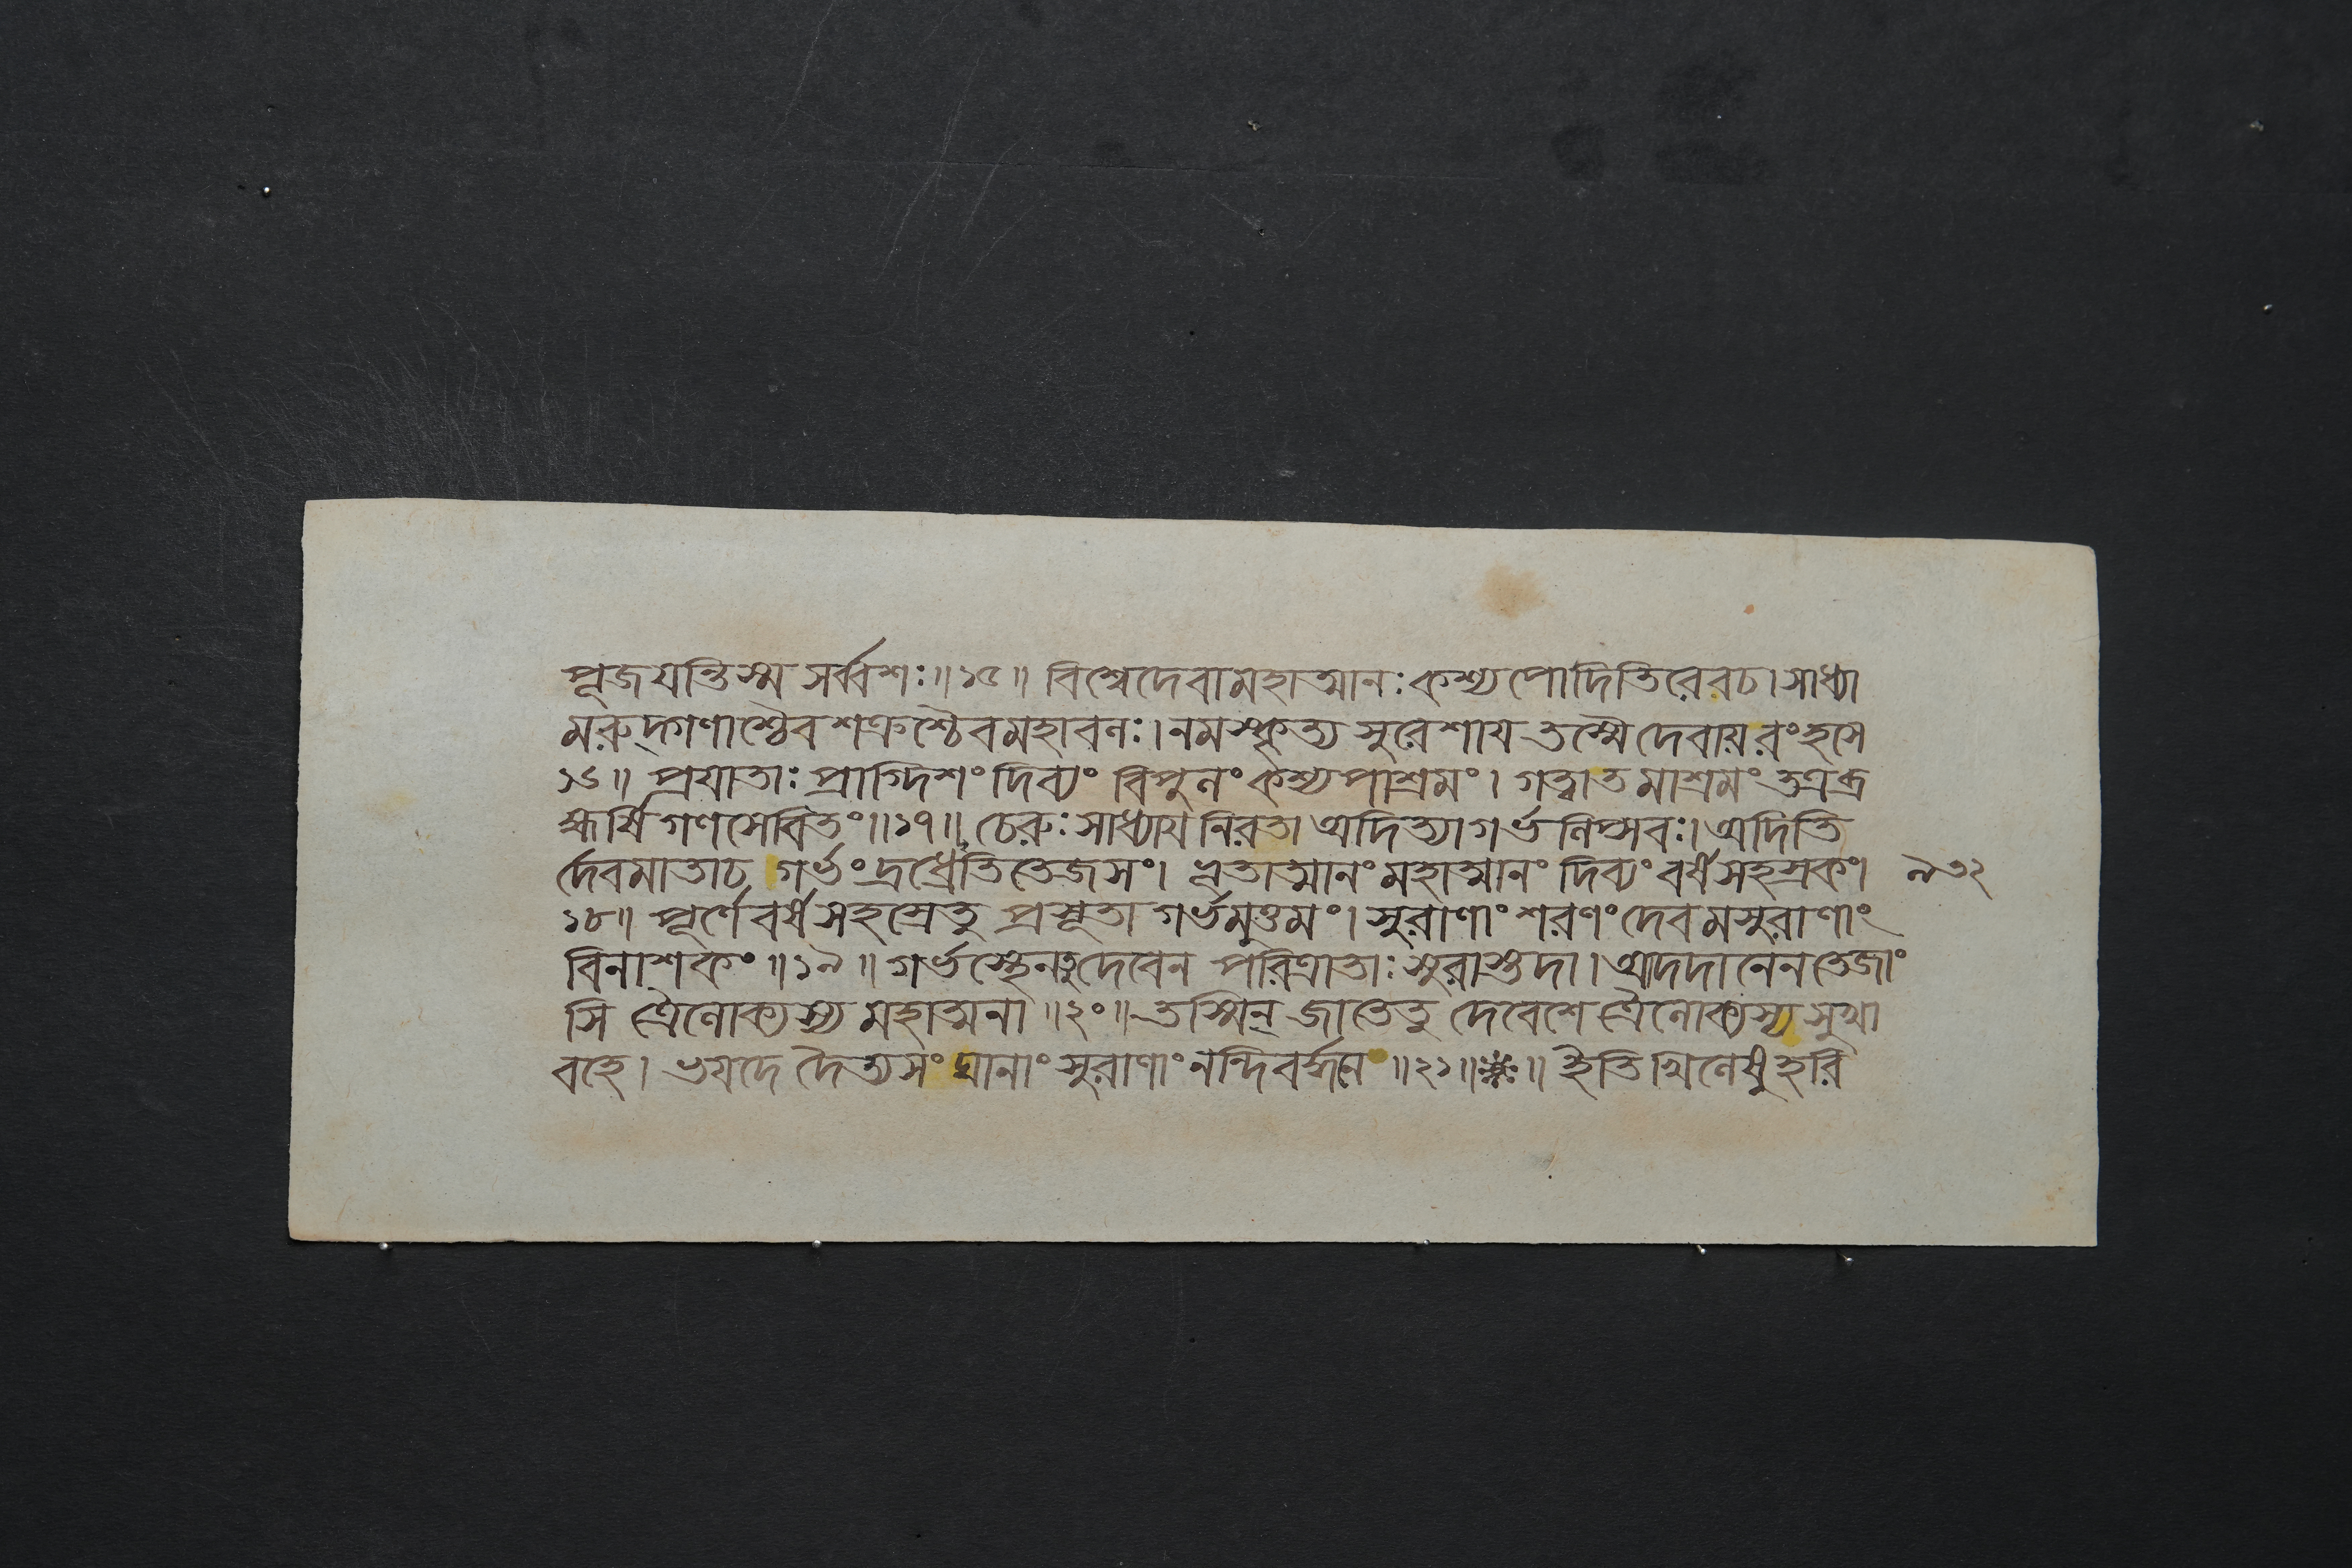 পূজযন্তিস্ম সর্ব্বশঃ॥১৫॥ বিশ্বেদেবামহাত্মানঃকশ্যপোদিতিরেবচ।সাধ্যা
মরুদ্গণাশ্চৈবশক্রশ্চৈবমহাবলঃ।নমস্কৃত্য সুরেশায তস্মৈদেবায়রংহসে
১৬॥ প্রযাতাঃ প্রাগ্দিশংদিব্যং বিপুলং কশ্যপাশ্রমং। গত্বাতমাশ্রমং তত্রব্র
হ্মর্ষিগণসেবিতং॥১৭॥ চেরুঃসাধ্যাযনিরতা অদিত্যাগর্ভলিপ্সবঃ।অদিতি
র্দেবমাতাচ গর্ভংদ্রধ্রেতিতেজসং। ভূতাত্মানংমহাত্মানং দিব্যংবর্ষসহস্রকং। ৯৩২
১৮॥ পূর্ণেবর্ষসহস্রেতু প্রসূতা গর্ভমুত্তমং। সুরাণাং শরণংদেবমসুরাণাং
বিনাশকং॥১৯॥ গর্ভস্থেনতুদেবেন পরিত্রাতাঃ সুরাস্তুদা।আদদানেনতেজাং
সি ত্রৈলোক্যস্য মহাত্মনা॥২০॥ তস্মিন্ জাতেতু দেবেশে ত্রৈলোক্যস্য সুখা
বহে। ভযদে দৈত্যসংঘানাং সুরাণাং নন্দিবর্দ্ধনে॥২১॥❋॥ ইতিখিলেষুহরি